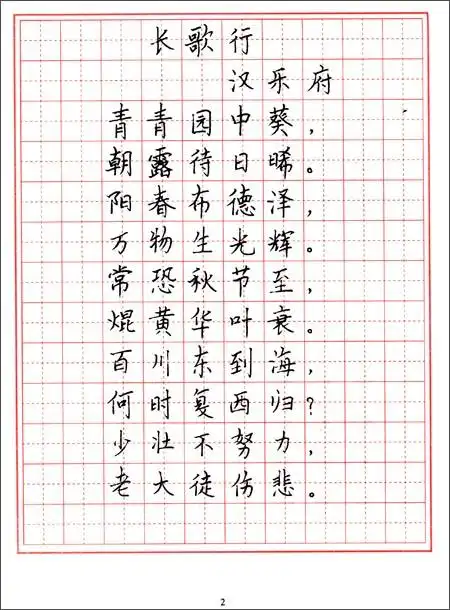 长歌行
汉乐府
青青园中葵，
朝露待日晞。
阳春布德泽，
万物生光辉。
常恐秋节至，
焜黄华叶衰。
百川东到海，
何时复西归？
少壮不努力，
老大徒伤悲。
2